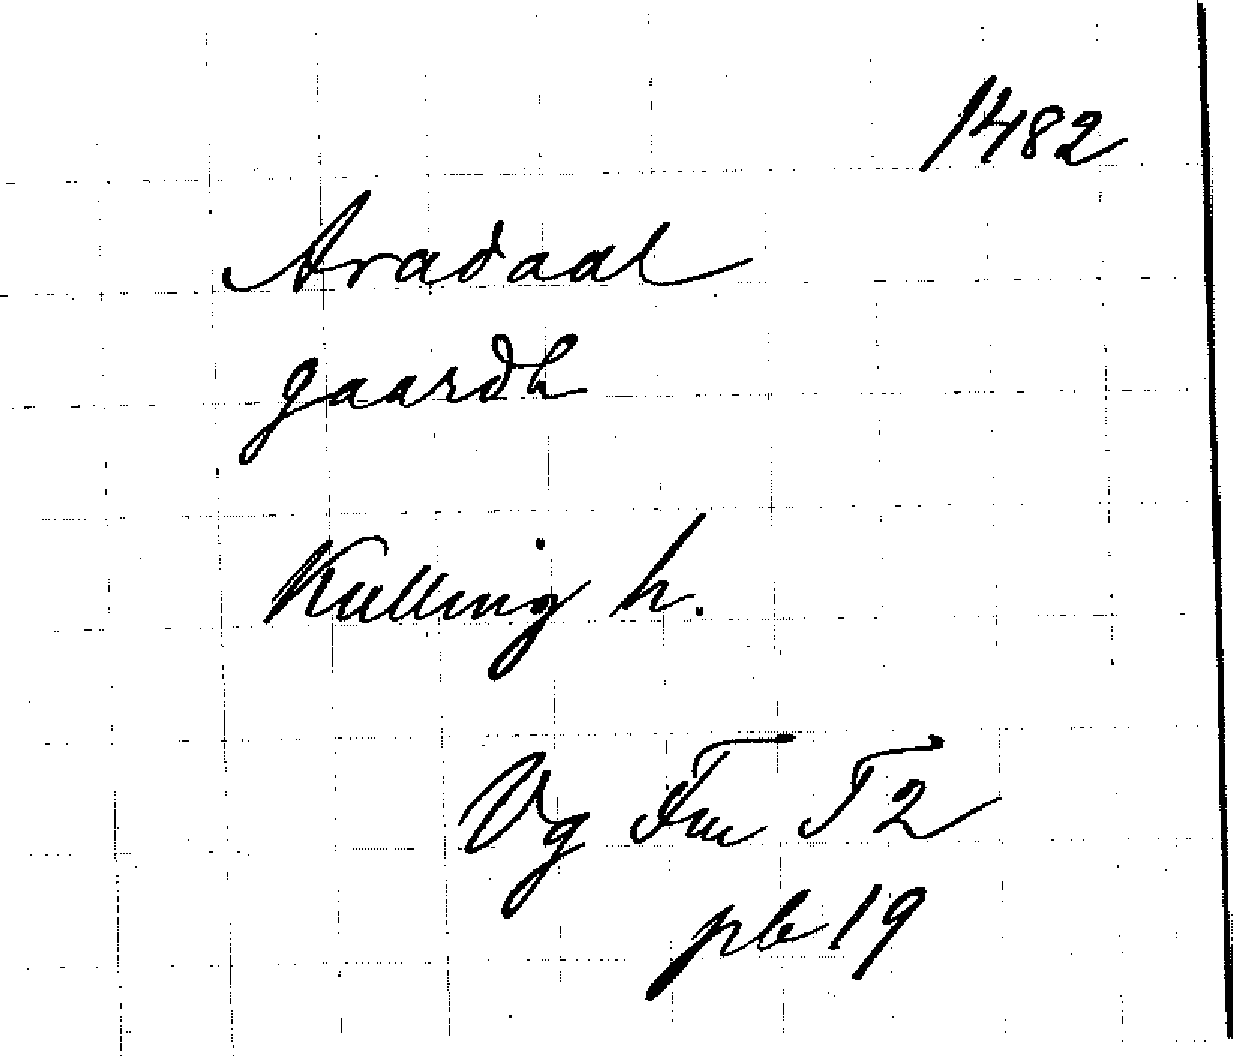 1482
Aradaal
gaardh
Kulling h.
Vg Fm T 2
pb 19